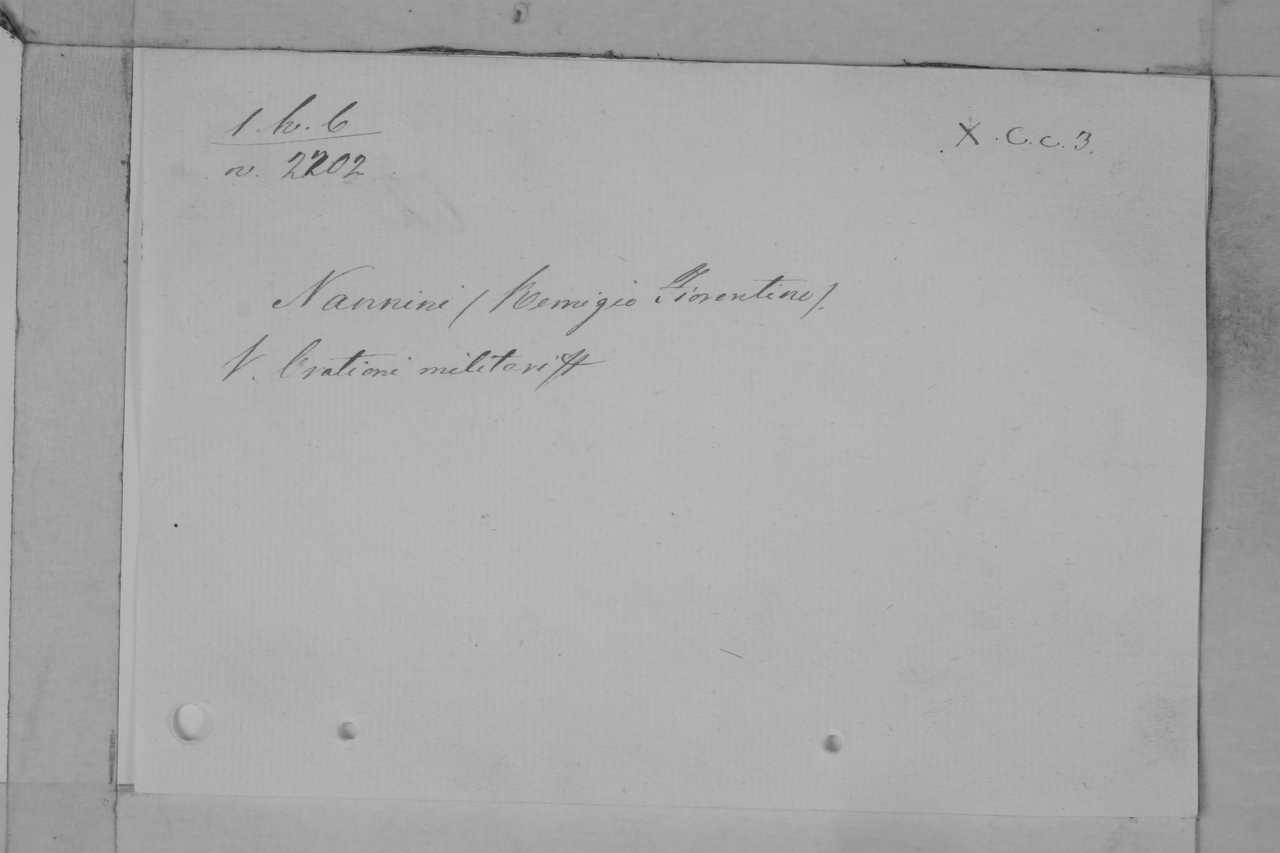 1. h. 6
n. 2202
X. C. c. 3.
Nannini (Remigio Fiorentino).
V. Orationi militari